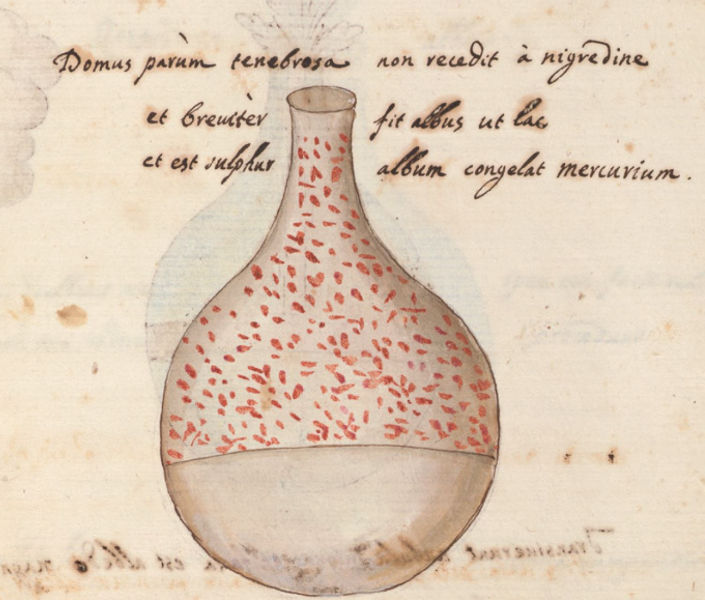 Domus parùm tenebrosa non recedit à nigredine
et breuitèr fit albus ut lac
et est sulphur album congelat mercurium.